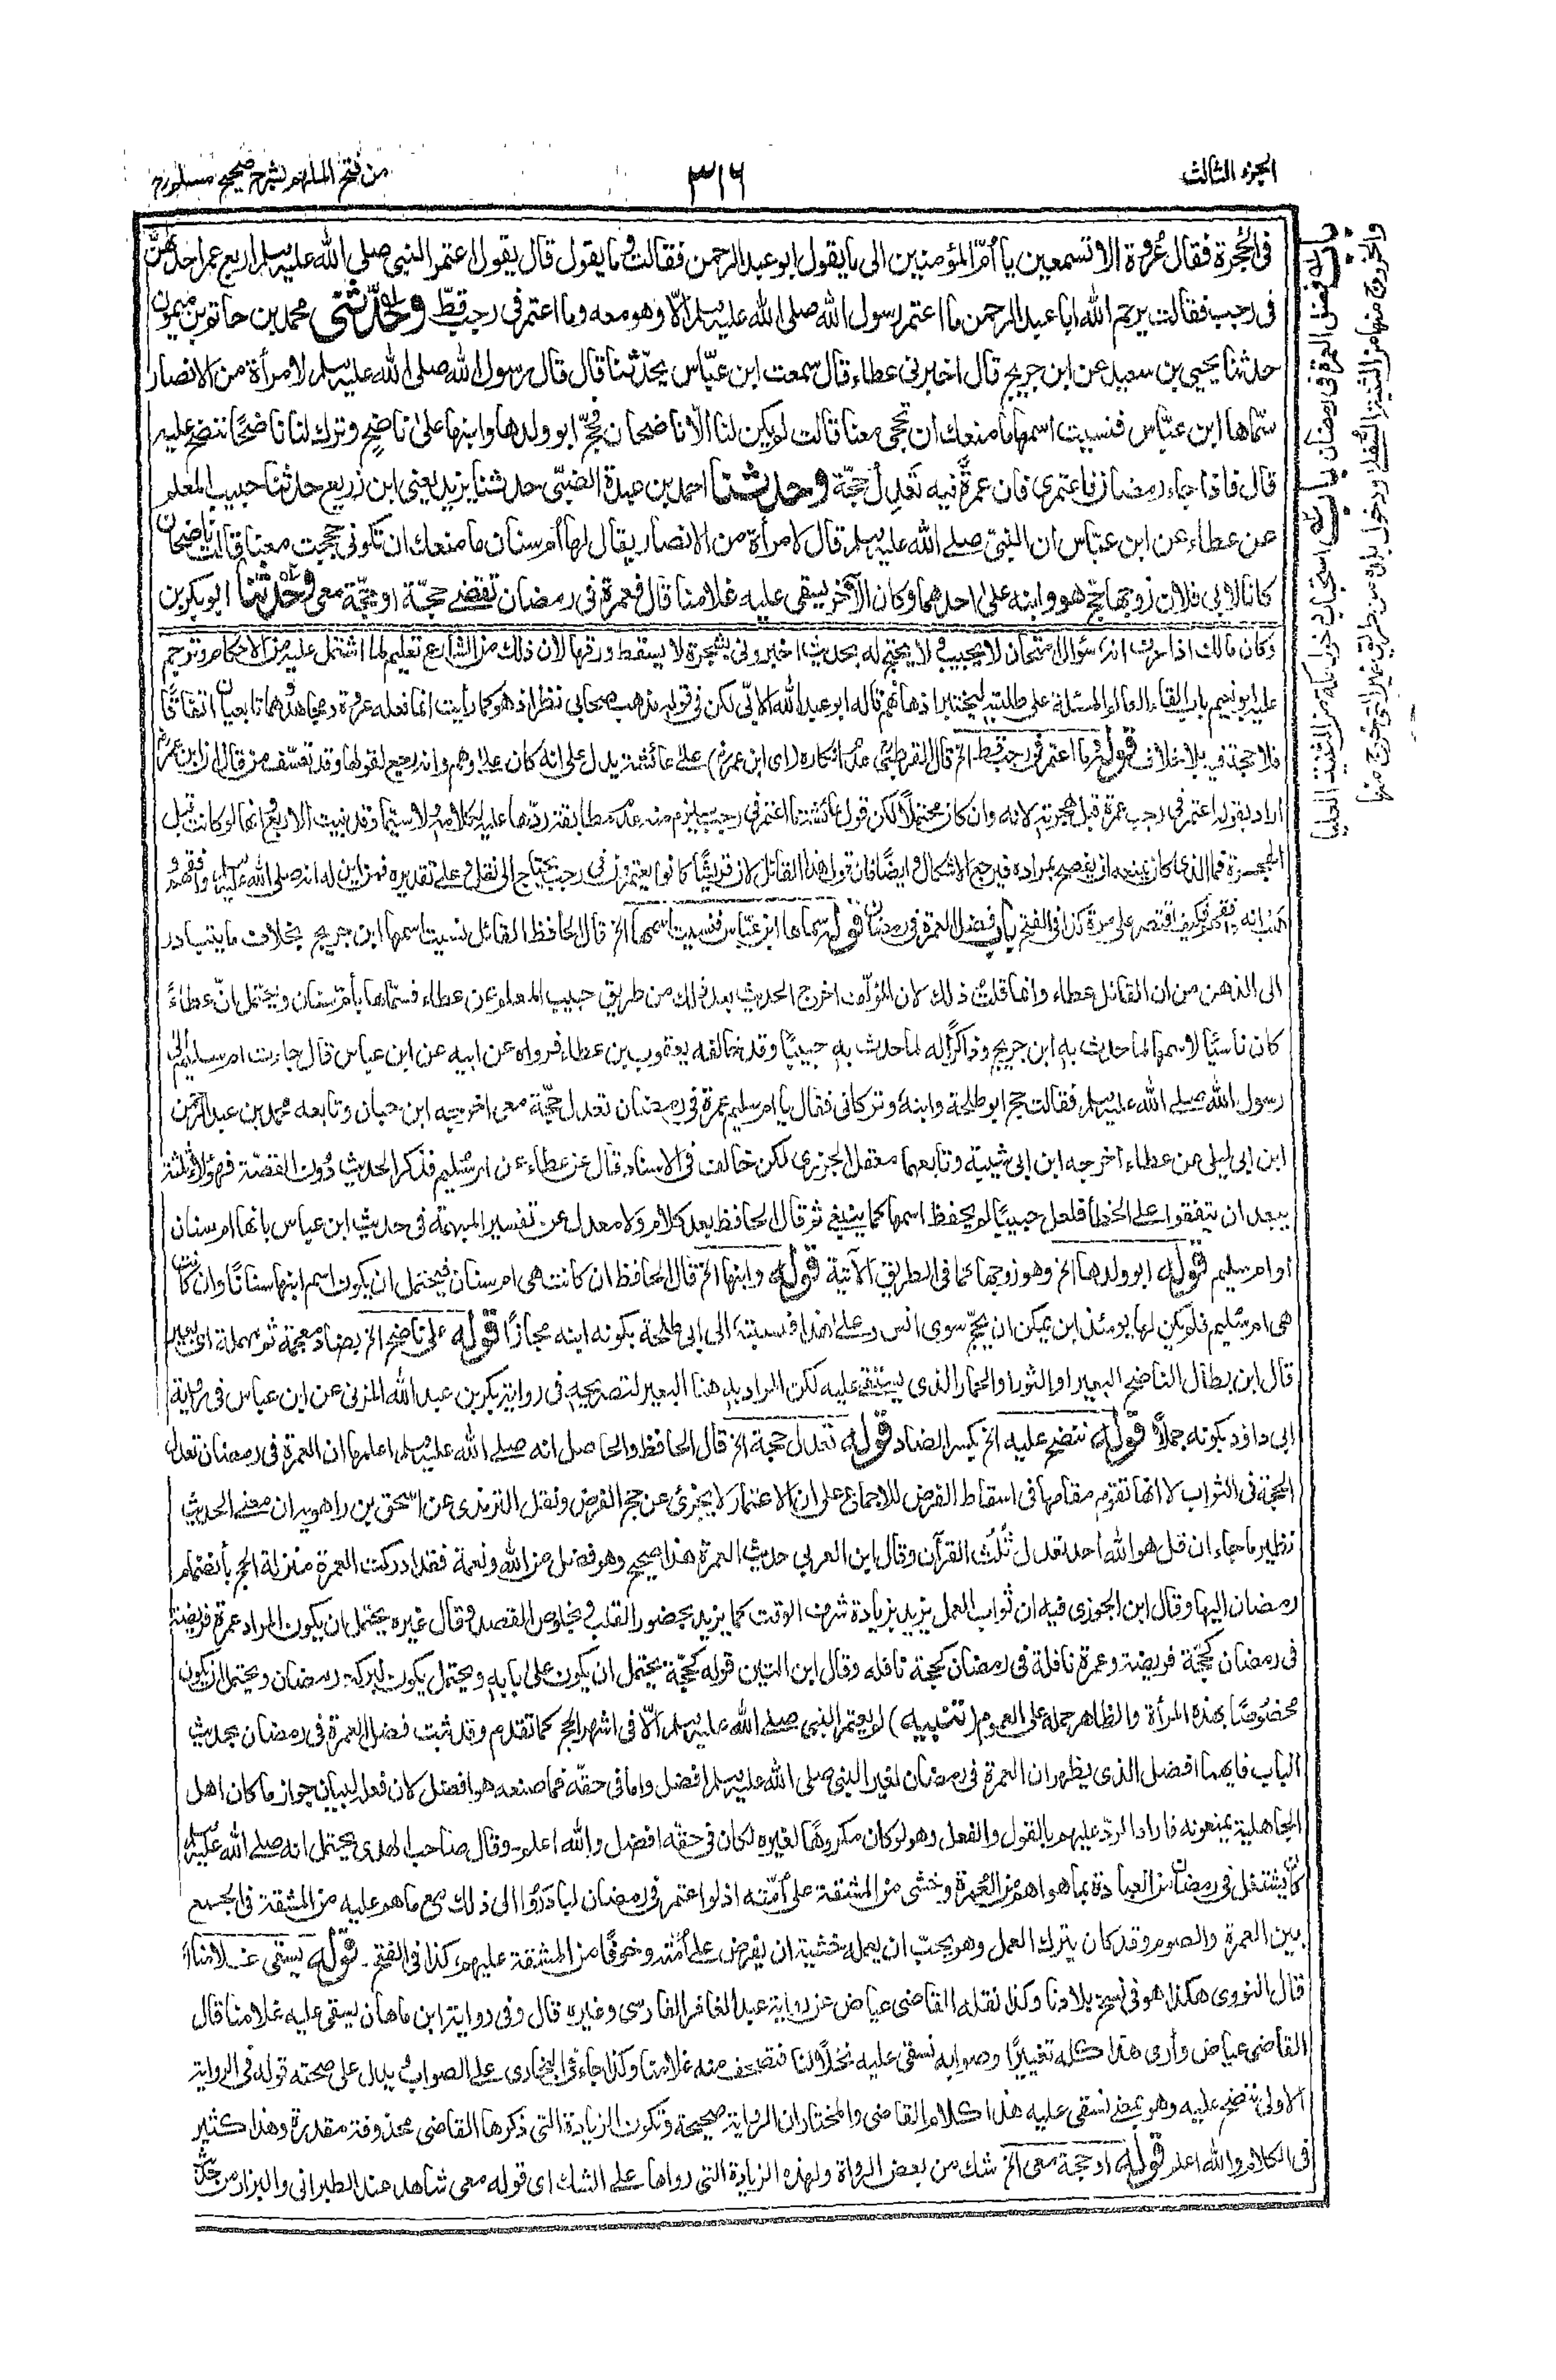 الجزء الثالث
٣١٦
من فتح الملهم بشرح صحيح مسلم رح
في الحجرة فقال عروة الا تسمعين يا أمّ المؤمنين الى ما يقول ابو عبد الرحمن فقالت وما يقول قال يقول اعتمر النبي صلى الله عليه وسلم اربع عمر احداهن
في رجب فقالت يرحم الله ابا عبد الرحمن ما اعتمر رسول الله صلى الله عليه وسلم الّا وهو معه وما اعتمر في رجب قطّ وحدّثنى محمد بن حاتم بن ميمون
حدثنا يحيى بن سعيد عن ابن جريج قال اخبرني عطاء قال سمعت ابن عبّاس يحدّثنا قال قال رسول الله صلى الله عليه وسلم لامرأة من الانصار
سمّاها ابن عبّاس فنسيت اسمها ما منعك ان تحجى معنا قالت لم يكن لنا الّا ناضحان فحجّ ابو ولدها وابنها على ناضح وترك لنا ناضحًا ننضح عليه
قال فاذا جاء رمضان فاعتمرى فان عمرةً فيه تعدل حجّة وحدثنا احمد بن عبدة الضبّى حدثنا يزيد يعنى ابن زريع حدثنا حبيب المعلم
عن عطاء عن ابن عبّاس ان النبىّ صلى الله عليه وسلم قال لامرأة من الانصار يقال لها أم سنان ما منعك ان تكونى حججت معنا قالت ناضحان
كانا لابى فلان زوجها حجّ هو وابنه على احدهما وكان الآخر يسقى عليه غلامنا قال فعمرة في رمضان تقضى حجّة او حجّة معى وحدثنا ابو بكر بن
وكان مالك اذا عرف انه سؤال امتحان لا يجيب ولا يحتج له بحديث اخبروني بشجرة لا يسقط ورقها لان ذلك من الشارع تعليم لما اشتمل عليه من الاحكام وترجم
عليه ابو نعيم باب القاء العالم المسئلة على طلبته ليختبر اذهانهم قاله ابو عبد الله الابّى لكن في قوله مذهب صحابى نظر اذ هو كما رأيت انما فعله عروة ومجاهد وهما تابعيان اتفاقًا
فلا حجة فيه بلا خلاف قوله وما اعتمر في رجب قط الخ قال القرطبى عدم انكاره (اى ابن عمر) على عائشة يدل على انه كان على وهم وانه رجع لقولها وقد تعسّف من قال ان ابن عمر
اراد بقوله اعتمر في رجب عمرة قبل هجرته لانه وان كان محتملًا لكن قول عائشة ما اعتمر في رجب يلزم منه عدم مطابقة ردّها عليه لكلامه ولا سيّما وقد بينت الاربع وانها لو كانت قبل
الهجرة فما الذى كان يمنعه ان يفصح بمراده فيرجع الاشكال وايضًا فان قول هذا القائل لان قريشًا كانوا يعتمرون في رجب يحتاج الى نقل وعلى تقديره فمن اين له انه صلى الله عليه وسلم وافقهم
هب انه وافقهم فكيف اقتصر على مرة كذا في الفتح باب فضل العمرة في رمضان قوله سماها ابن عبّاس فنسيت اسمها الخ قال الحافظ القائل نسيت اسمها ابن جريج بخلاف ما يتبادر
الى الذهن من ان القائل عطاء وانما قلت ذلك لان المؤلّف اخرج الحديث بعد ذلك من طريق حبيب المعلم عن عطاء فسمّاها بأم سنان ويحتمل انّ عطاءً
كان ناسيًا لاسمها لما حدث به ابن جريج وذاكرًا له لما حدث به حبيبًا وقد خالفه يعقوب بن عطاء فرواه عن ابيه عن ابن عباس قال جاءت ام سليم الى
رسول الله صلى الله عليه وسلم فقالت حج ابو طلحة وابنه وتركانى فقال يا ام سليم عمرة في رمضان تعدل حجّة معى اخرجه ابن حبان وتابعه محمد بن عبد الرحمن
ابن ابى ليلى عن عطاء اخرجه ابن ابى شيبة وتابعهما معقل الجزرى لكن خالف في الاسناد قال عن عطاء عن ام سليم فذكر الحديث دون القصّة فهؤلاء ثلثة
يبعد ان يتفقوا على الخطأ فلعل حبيبًا لم يحفظ اسمها كما ينبغى ثم قال الحافظ بعد كلام ولا معدل عن تفسير المبهمة في حديث ابن عباس بانها ام سنان
او ام سليم قوله ابو ولدها الخ وهو زوجها كما في الطريق الآتية قوله وابنها الخ قال الحافظ ان كانت هى ام سنان فيحتمل ان يكون اسم ابنها سنانًا وان كانت
هى ام سُليم فلم يكن لها يومئذ ابن يمكن ان يحجّ سوى انس وعلى هذا فنسبته الى ابى طلحة بكونه ابنه مجازًا قوله على ناضح الخ بضاد معجمة ثم مهملة اى بعير
قال ابن بطال الناضح البعير او الثور او الحمار الذى يستقى عليه لكن المراد به هنا البعير لتصريحه في رواية بكر بن عبد الله المزنى عن ابن عباس في رواية
ابى داؤد بكونه جملًا قوله ننضح عليه الخ بكسر الضاد قوله تعدل حجة الخ قال الحافظ والحاصل انه صلى الله عليه وسلم اعلمها ان العمرة في رمضان تعدل
الحجة في الثواب لا انها تقوم مقامها في اسقاط الفرض للاجماع على ان الاعتمار لا يجزئ عن حج الفرض ونقل الترمذى عن اسحق بن راهويه ان معنى الحديث
نظير ما جاء ان قل هو الله احد تعدل ثلث القرآن وقال ابن العربى حديث العمرة هذا صحيح وهو فضل من الله ونعمة فقد ادركت العمرة منزلة الحج بانضمام
رمضان اليها وقال ابن الجوزى فيه ان ثواب العمل يزيد بزيادة شرف الوقت كما يزيد بحضور القلب وبخلوص القصد وقال غيره يحتمل ان يكون المراد عمرة فريضة
في رمضان كحجّة فريضة وعمرة نافلة في رمضان كحجة نافلة وقال ابن التين قوله كحجّة يحتمل ان يكون على بابه ويحتمل يكون لبركة رمضان ويحتمل ان يكون
مخصوصًا بهذه المرأة والظاهر حمله على العموم (تنبيه) لم يعتمر النبى صلى الله عليه وسلم الّا في اشهر الحج كما تقدم وقد ثبت فضل العمرة في رمضان بحديث
الباب فايهما افضل الذى يظهر ان العمرة في رمضان لغير النبى صلى الله عليه وسلم افضل واما في حقه فما صنعه هو افضل لان فعله لبيان جواز ما كان اهل
الجاهلية يمنعونه فاراد الردّ عليهم بالقول والفعل وهو لو كان مكروهًا لغيره لكان في حقه افضل والله اعلم وقال صاحب الهدى يحتمل انه صلى الله عليه وسلم
كان يشتغل في رمضان من العبادة بما هو اهم من العمرة وخشى من المشقة على أمّته اذ لو اعتمر في رمضان لبادروا الى ذلك مع ما هم عليه من المشقة في الجمع
بين العمرة والصوم وقد كان يترك العمل وهو يحبّ ان يعمله خشية ان يفرض على أمته وخوفًا من المشقة عليهم كذا في الفتح قوله يسقى غلامنا
قال النووى هكذا هو في نسخ بلادنا وكذا نقله القاضى عياض عن رواية عبد الغافر الفارسى وغيره قال وفى رواية ابن ماهان يسقى عليه غلامنا قال
القاضى عياض وأرى هذا كله تغييرًا وصوابه نسقى عليه نخلًا لنا فتصحف منه غلامنا وكذا جاء في البخارى على الصواب ويدل على صحته قوله في الرواية
الاولى ننضح عليه وهو بمعنى نسقى عليه هذا كلام القاضى والمختار ان الرواية صحيحة وتكون الزيادة التى ذكرها القاضى محذوفة مقدرة وهذا كثير
في الكلام والله اعلم قوله او حجة معى الخ شك من بعض الرواة ولهذه الزيادة التى رواها على الشك اى قوله معى شاهد عند الطبرانى والبزار من حديث
باب فضل العمرة في رمضان باب استحباب دخول مكة من الثنية العليا
والخروج منها من الثنية السفلى ودخول بلده من طريق غير التى خرج منها